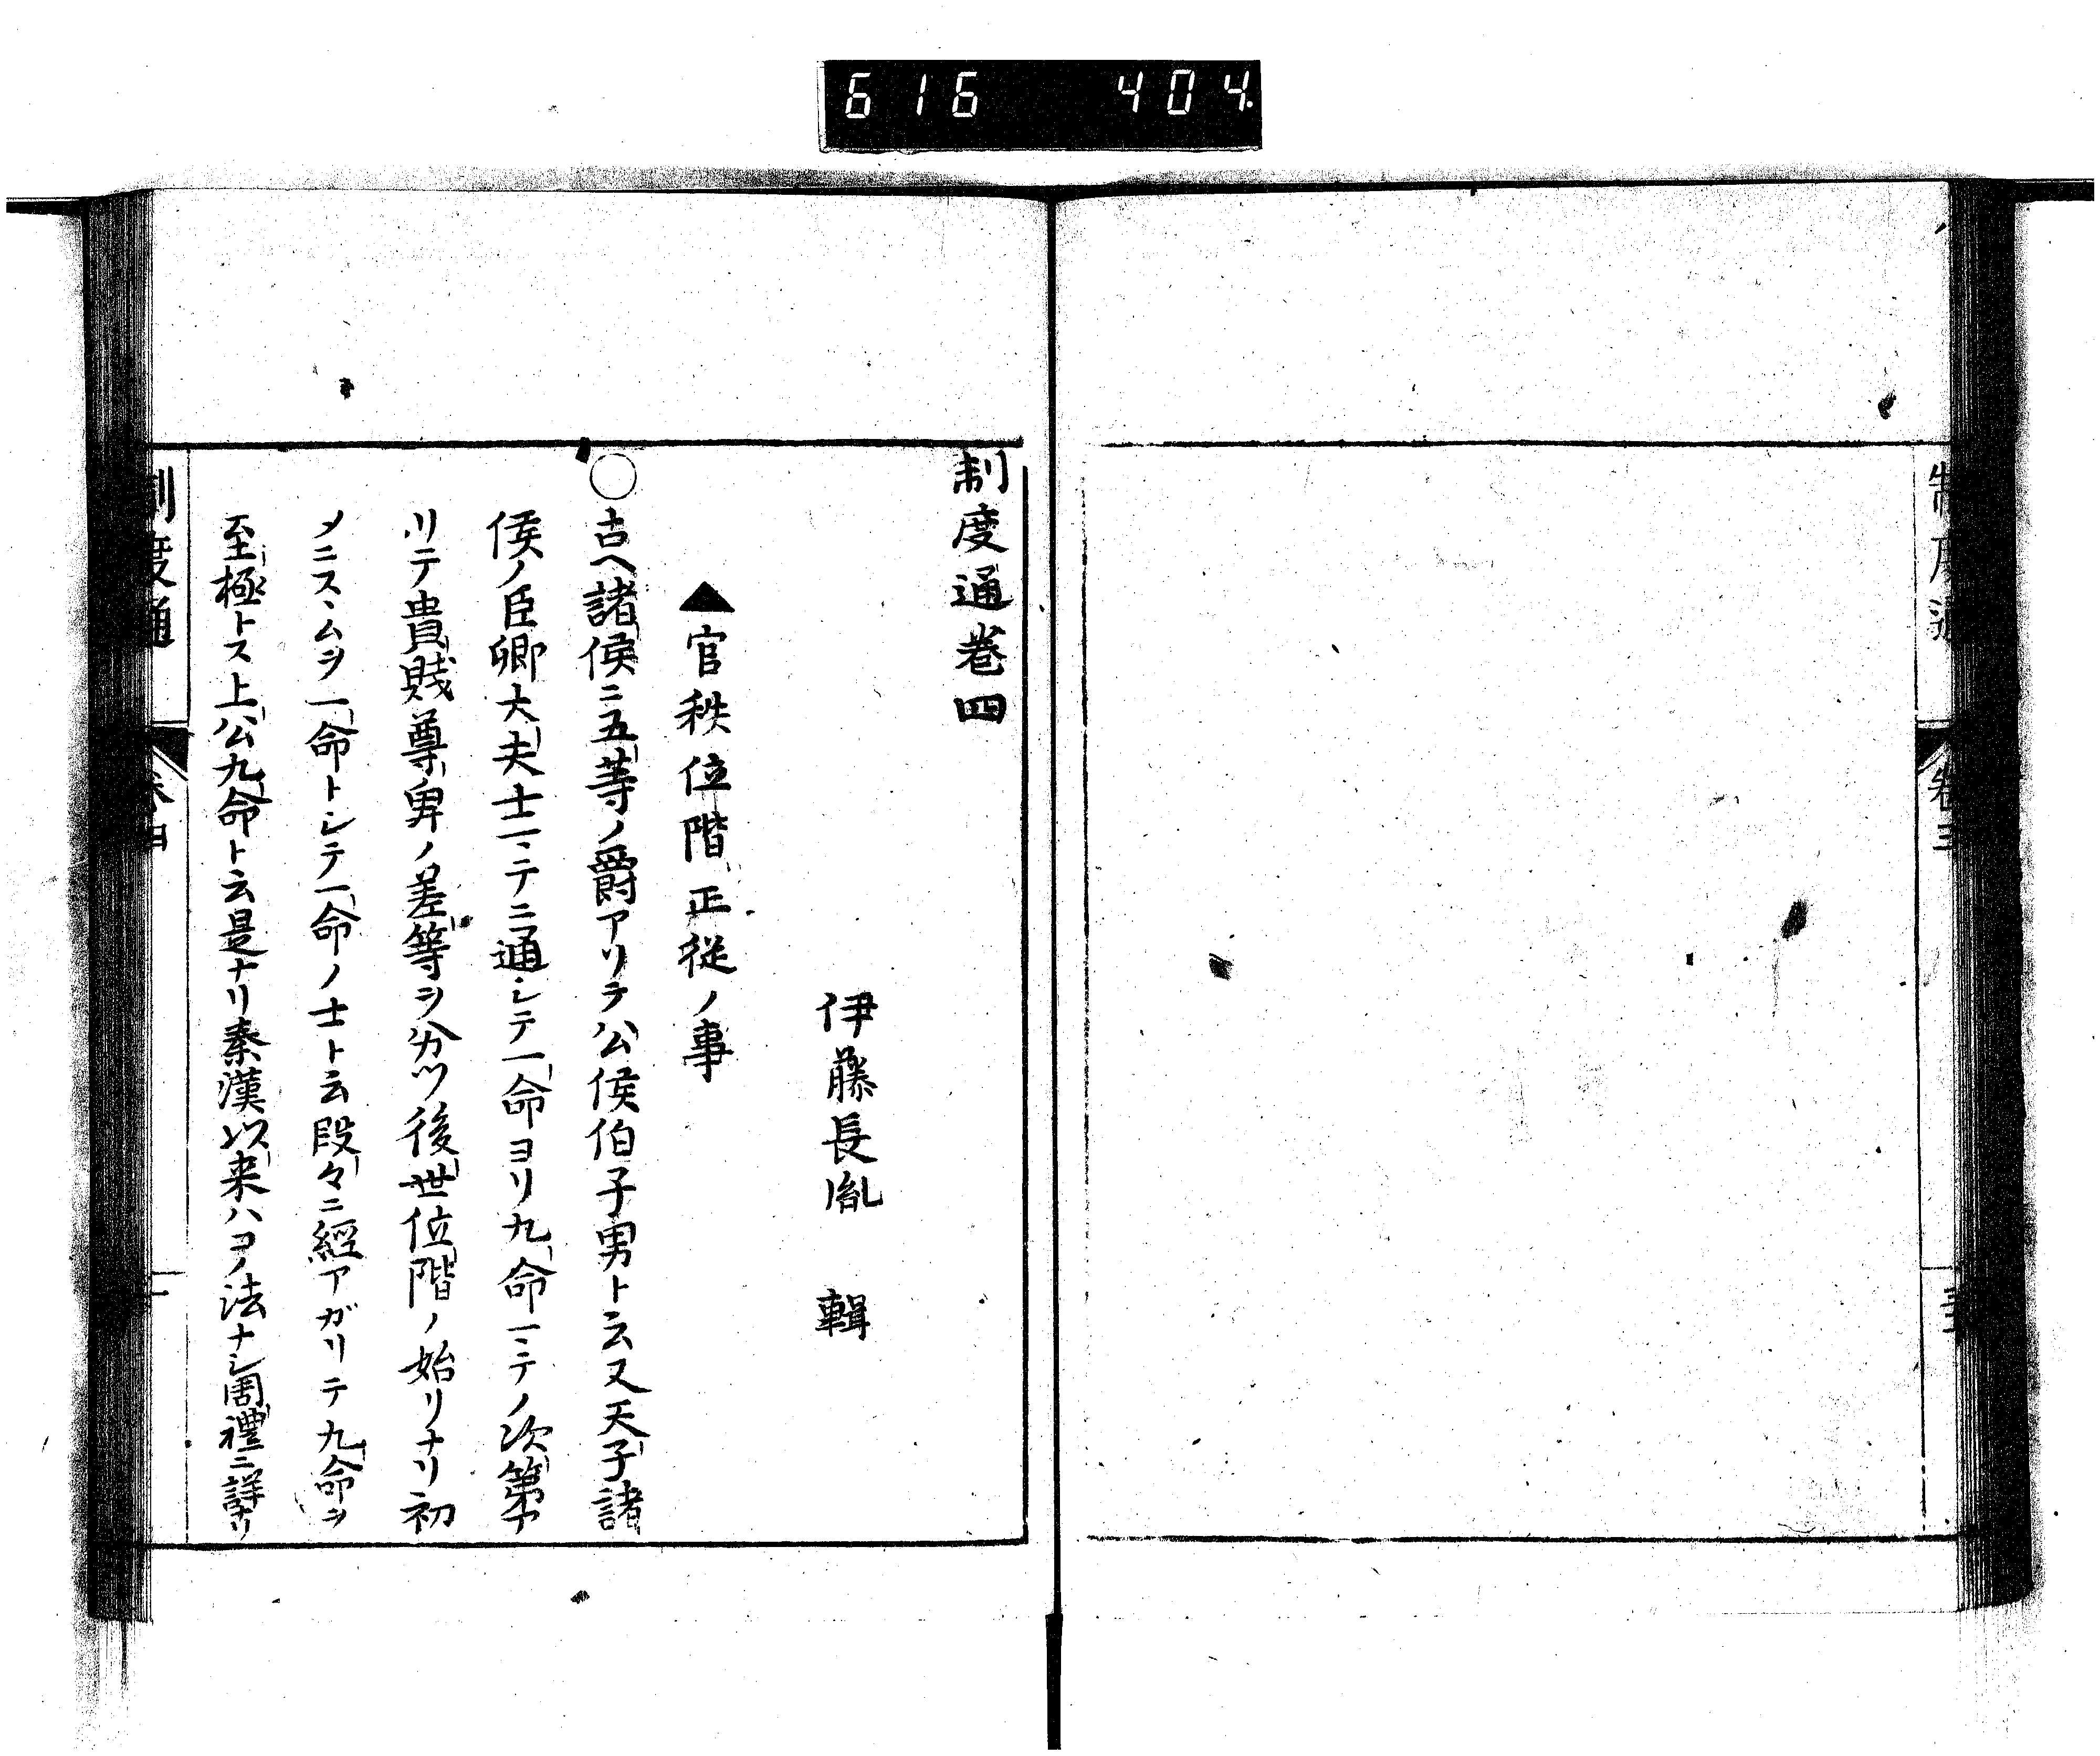 616 404
制度通巻四
伊藤長胤 輯
▲官秩位階正従ノ事
○古ヘ諸侯ニ五等ノ爵アリテ公侯伯子男ト云又天子諸
侯ノ臣卿大夫士ニ〻テニ通シテ一命ヨリ九命ニ〻テノ次第ア
リテ貴賤尊卑ノ差等ヲ分ツ後世位階ノ始リナリ初
メニスヽムヲ一命トシテ一命ノ士ト云段々ニ經アガリテ九命ヲ
至極トス上公九命ト云是ナリ秦漢以来ハコノ法ナシ周禮ニ詳ナリ
制度通